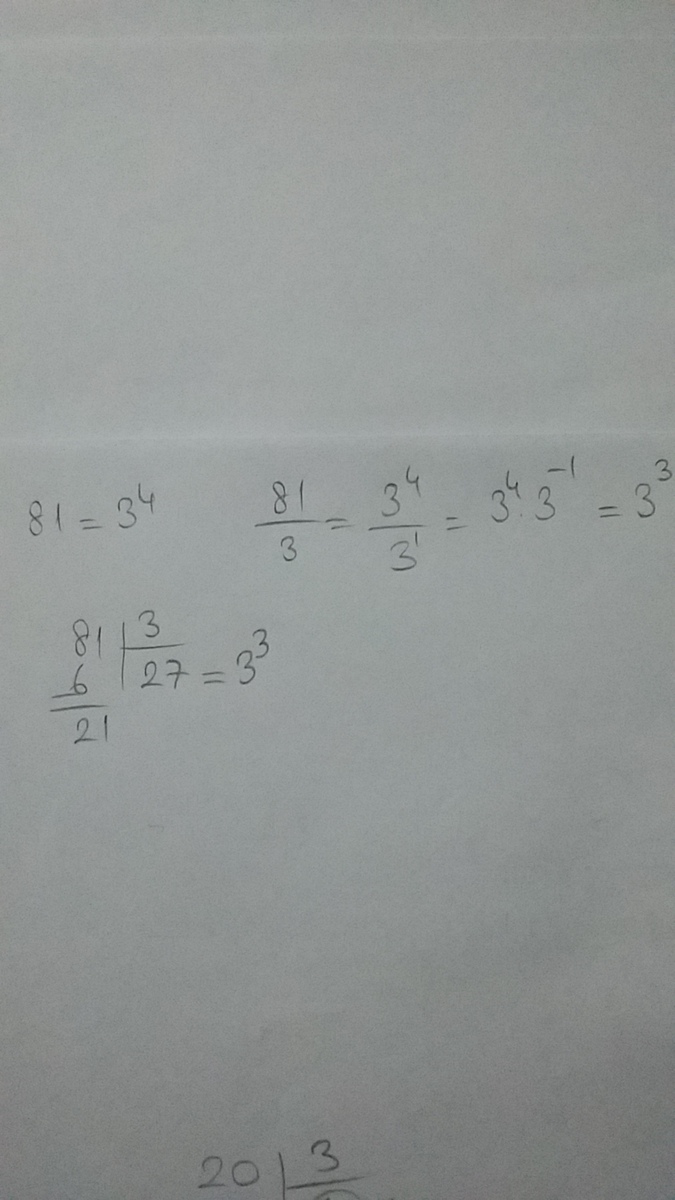 81 = 3⁴
81/3 = 3⁴/3¹ = 3⁴ · 3⁻¹ = 3³
81 | 3
6 | 27 = 3³
21
20 | 3